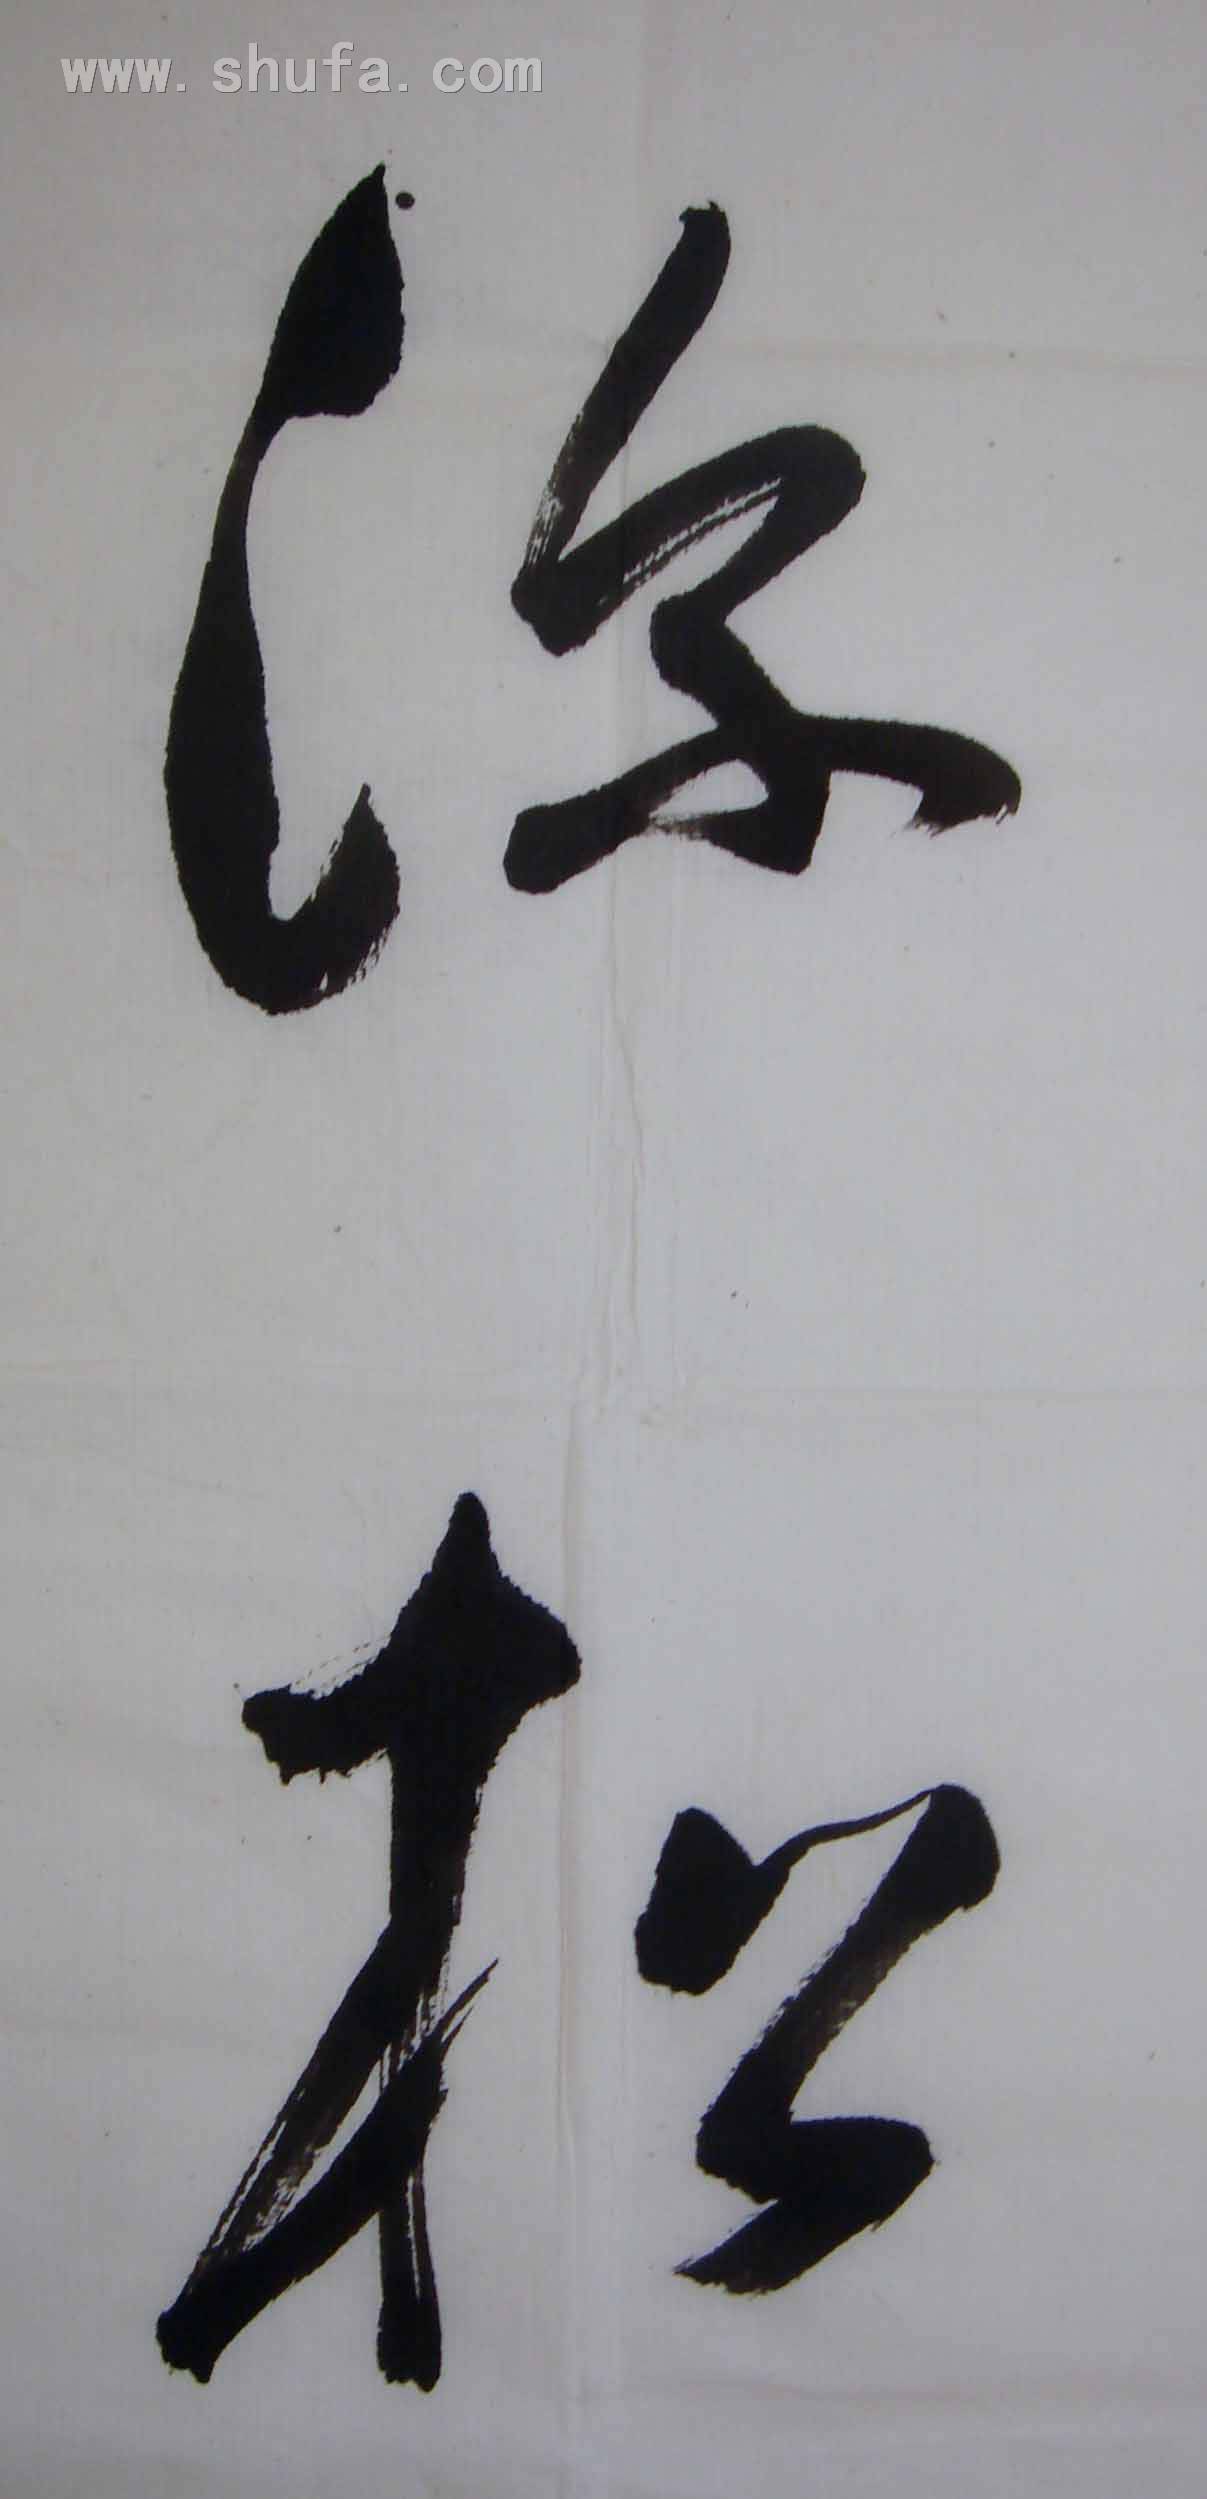 www.shufa.com
深松